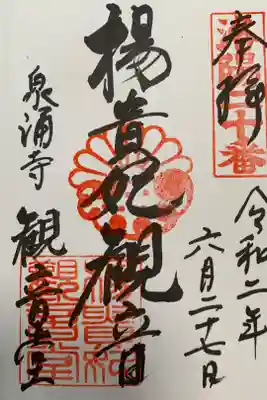 奉拝
洛陽二十番
令和二年
六月二十七日
楊貴妃観音
泉涌寺
観音堂